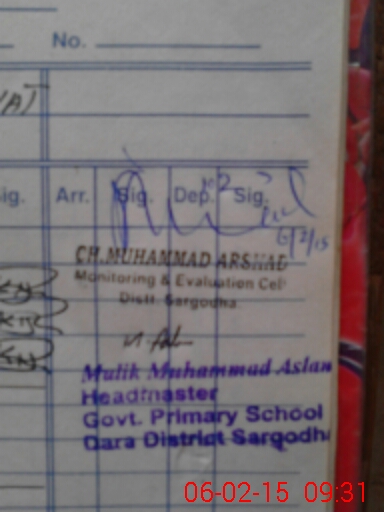 No.
Arr. Sig. Dep. Sig.
6/2/15
CH.MUHAMMAD ARSHAD
Monitoring & Evaluation Cell
Distt. Sargodha
Malik Muhammad Aslam
Headmaster
Govt. Primary School
Dara District Sargodha
06-02-15 09:31